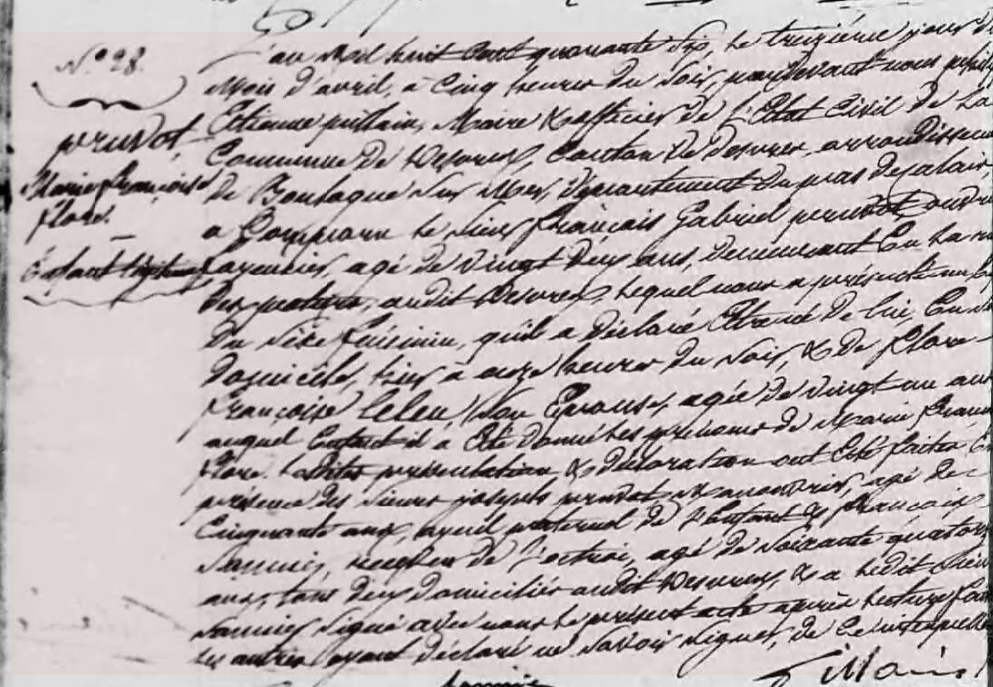 N° 28.
pruvot,
Marie françoise
flore.
Enfant légitime
L'an Mil huit Cent quarante Six, Le treizième jour du
Mois d'avril, à Cinq heures du Soir, pardevant nous
Etienne pillain, Maire & officier de L'Etat Civil de La
Commune de Desvres, Canton de desvres, arrondisseme
de Boulogne Sur Mer, département du pas de Calais,
a Comparu Le Sieur françois Gabriel pruvot,
agé de vingt deux ans, demeurant En La rue
des potiers, audit Desvres, Lequel nous a présenté un
du Séxe féminin, qu'il a déclaré Etre né de lui, En
domicile, hier à onze heures du Soir, & de flore
françoise Leleu, Son Epouse, agée de vingt un ans
auquel Enfant il a Eté donné Les prénoms de Marie
flore. Lesdites présentation & déclaration ont Eté faites En
présence des Sieurs joseph pruvot, agé de
Cinquante ans, ayeul paternel de L'Enfant & françois
Sannier, de L'octroi, agé de Soixante quatorze
ans, tous deux domiciliés audit Desvres, & a Ledit Sieur
Sannier Signé avec nous Le présent acte après Lecture
Les autres ayant déclaré ne Savoir Signer, de Ce
Sannier
Pillain